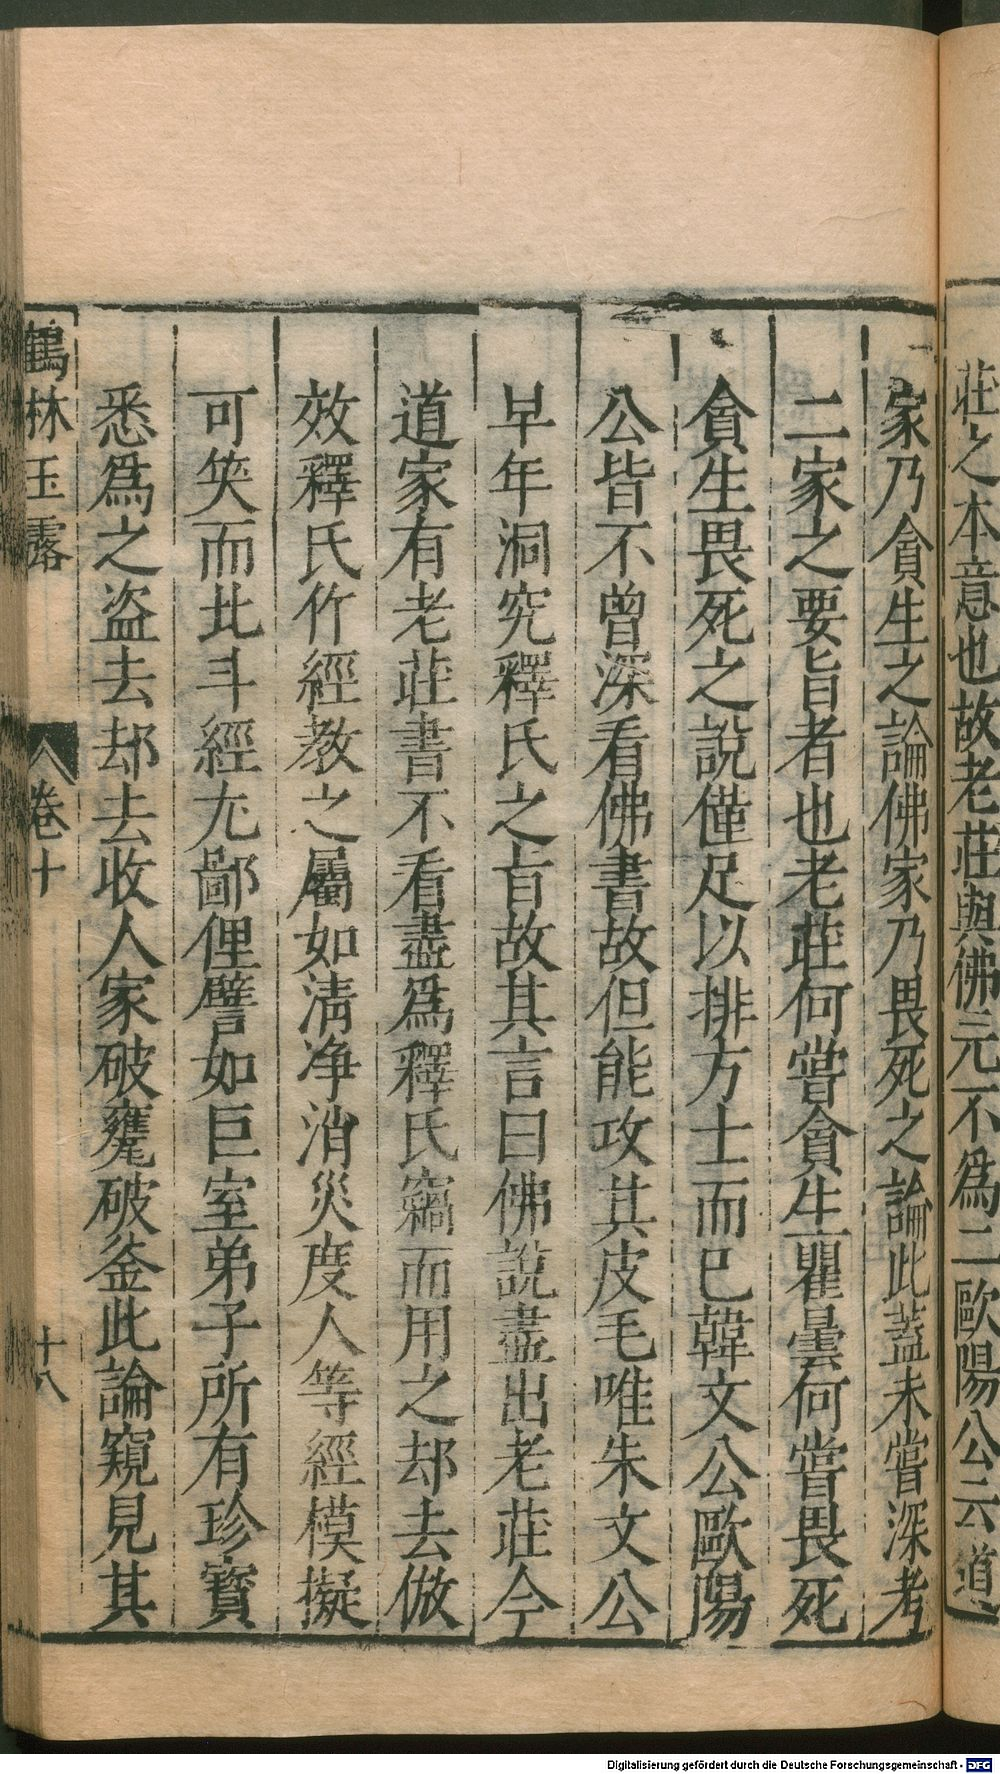 莊之本意也故老莊與佛元不爲二歐陽公云道
家乃貪生之論佛家乃畏死之論此蓋未嘗深考
二家之要旨者也老莊何嘗貪生瞿曇何嘗畏死
貪生畏死之說僅足以排方士而已韓文公歐陽
公皆不曾深看佛書故但能攻其皮毛唯朱文公
早年洞究釋氏之旨故其言曰佛說盡出老莊今
道家有老莊書不看盡爲釋氏竊而用之却去倣
效釋氏作經教之屬如清净消災度人等經模擬
可笑而北斗經尤鄙俚譬如巨室弟子所有珍寶
悉爲之盗去却去收人家破甕破釜此論窺見其
鶴林玉露
卷十
十八
Digitalisierung gefördert durch die Deutsche Forschungsgemeinschaft - DFG